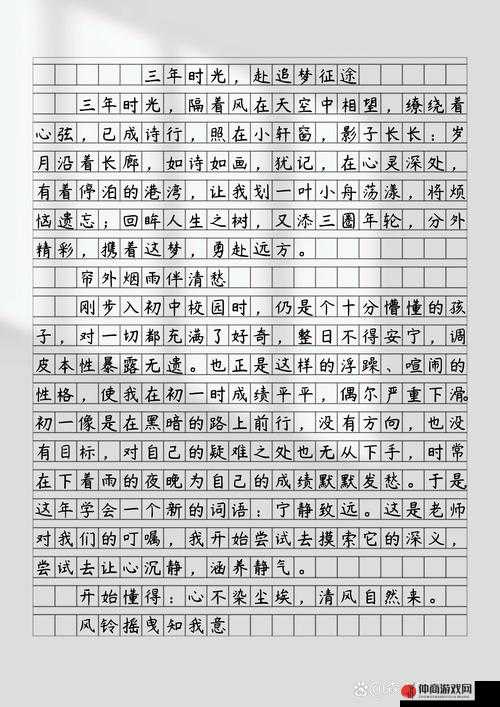 三年时光，赴追梦征途
三年时光，隔着风在天空中相望，缭绕着
心弦，已成诗行，照在小轩窗，影子长长；岁
月沿着长廊，如诗如画，犹记，在心灵深处，
有着停泊的港湾，让我划一叶小舟荡漾，将烦
恼遗忘；回眸人生之树，又添三圈年轮，分外
精彩，携着这梦，勇赴远方。
帘外烟雨伴清愁
刚步入初中校园时，仍是个十分懵懂的孩
子，对一切都充满了好奇，整日不得安宁，调
皮本性暴露无遗。也正是这样的浮躁、喧闹的
性格，使我在初一时成绩平平，偶尔严重下滑。
初一像是在黑暗的路上前行，没有方向，也没
有目标，对自己的疑难之处也无从下手，时常
在下着雨的夜晚为自己的成绩默默发愁。于是
这年学会一个新的词语：宁静致远。这是老师
对我们的叮嘱，我开始尝试去摸索它的深义，
尝试去让心沉静，涵养静气。
开始懂得：心不染尘埃，清风自然来。
风铃摇曳知我意
仲商游戏网